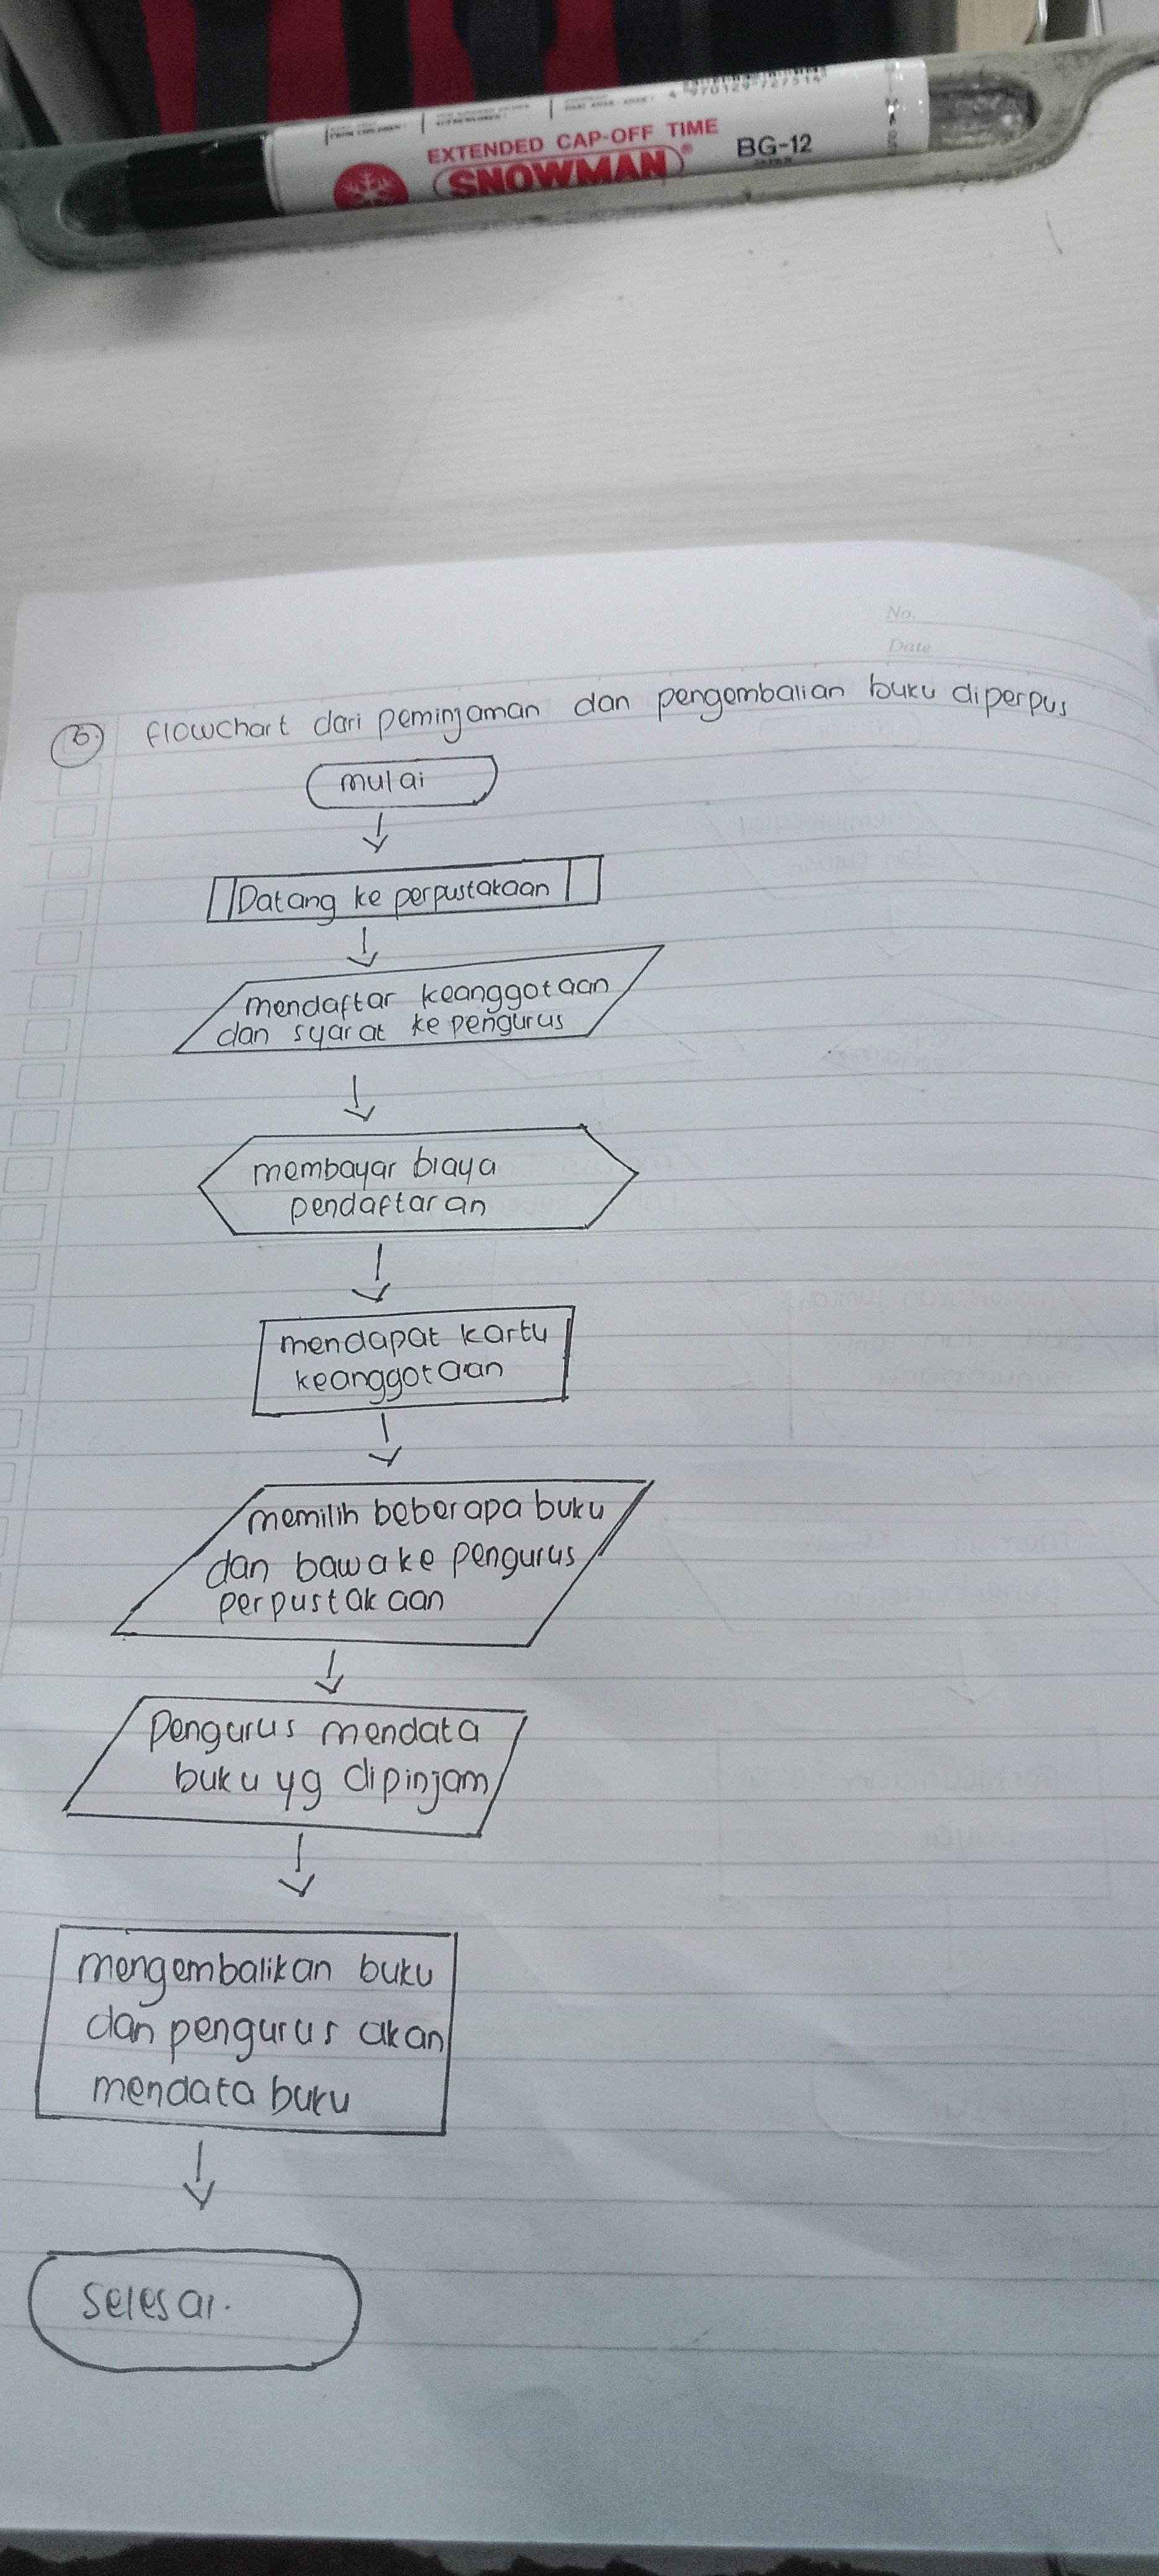 EXTENDED CAP-OFF TIME
SNOWMAN
BG-12
No.
Date
6. flowchart dari peminjaman dan pengembalian buku diperpus
mulai
Datang ke perpustakaan
mendaftar keanggotaan
dan syarat ke pengurus
membayar biaya
pendaftaran
mendapat kartu
keanggotaan
memilih beberapa buku
dan bawa ke pengurus
perpustakaan
Pengurus mendata
buku yg dipinjam
mengembalikan buku
dan pengurus akan
mendata buku
selesai.